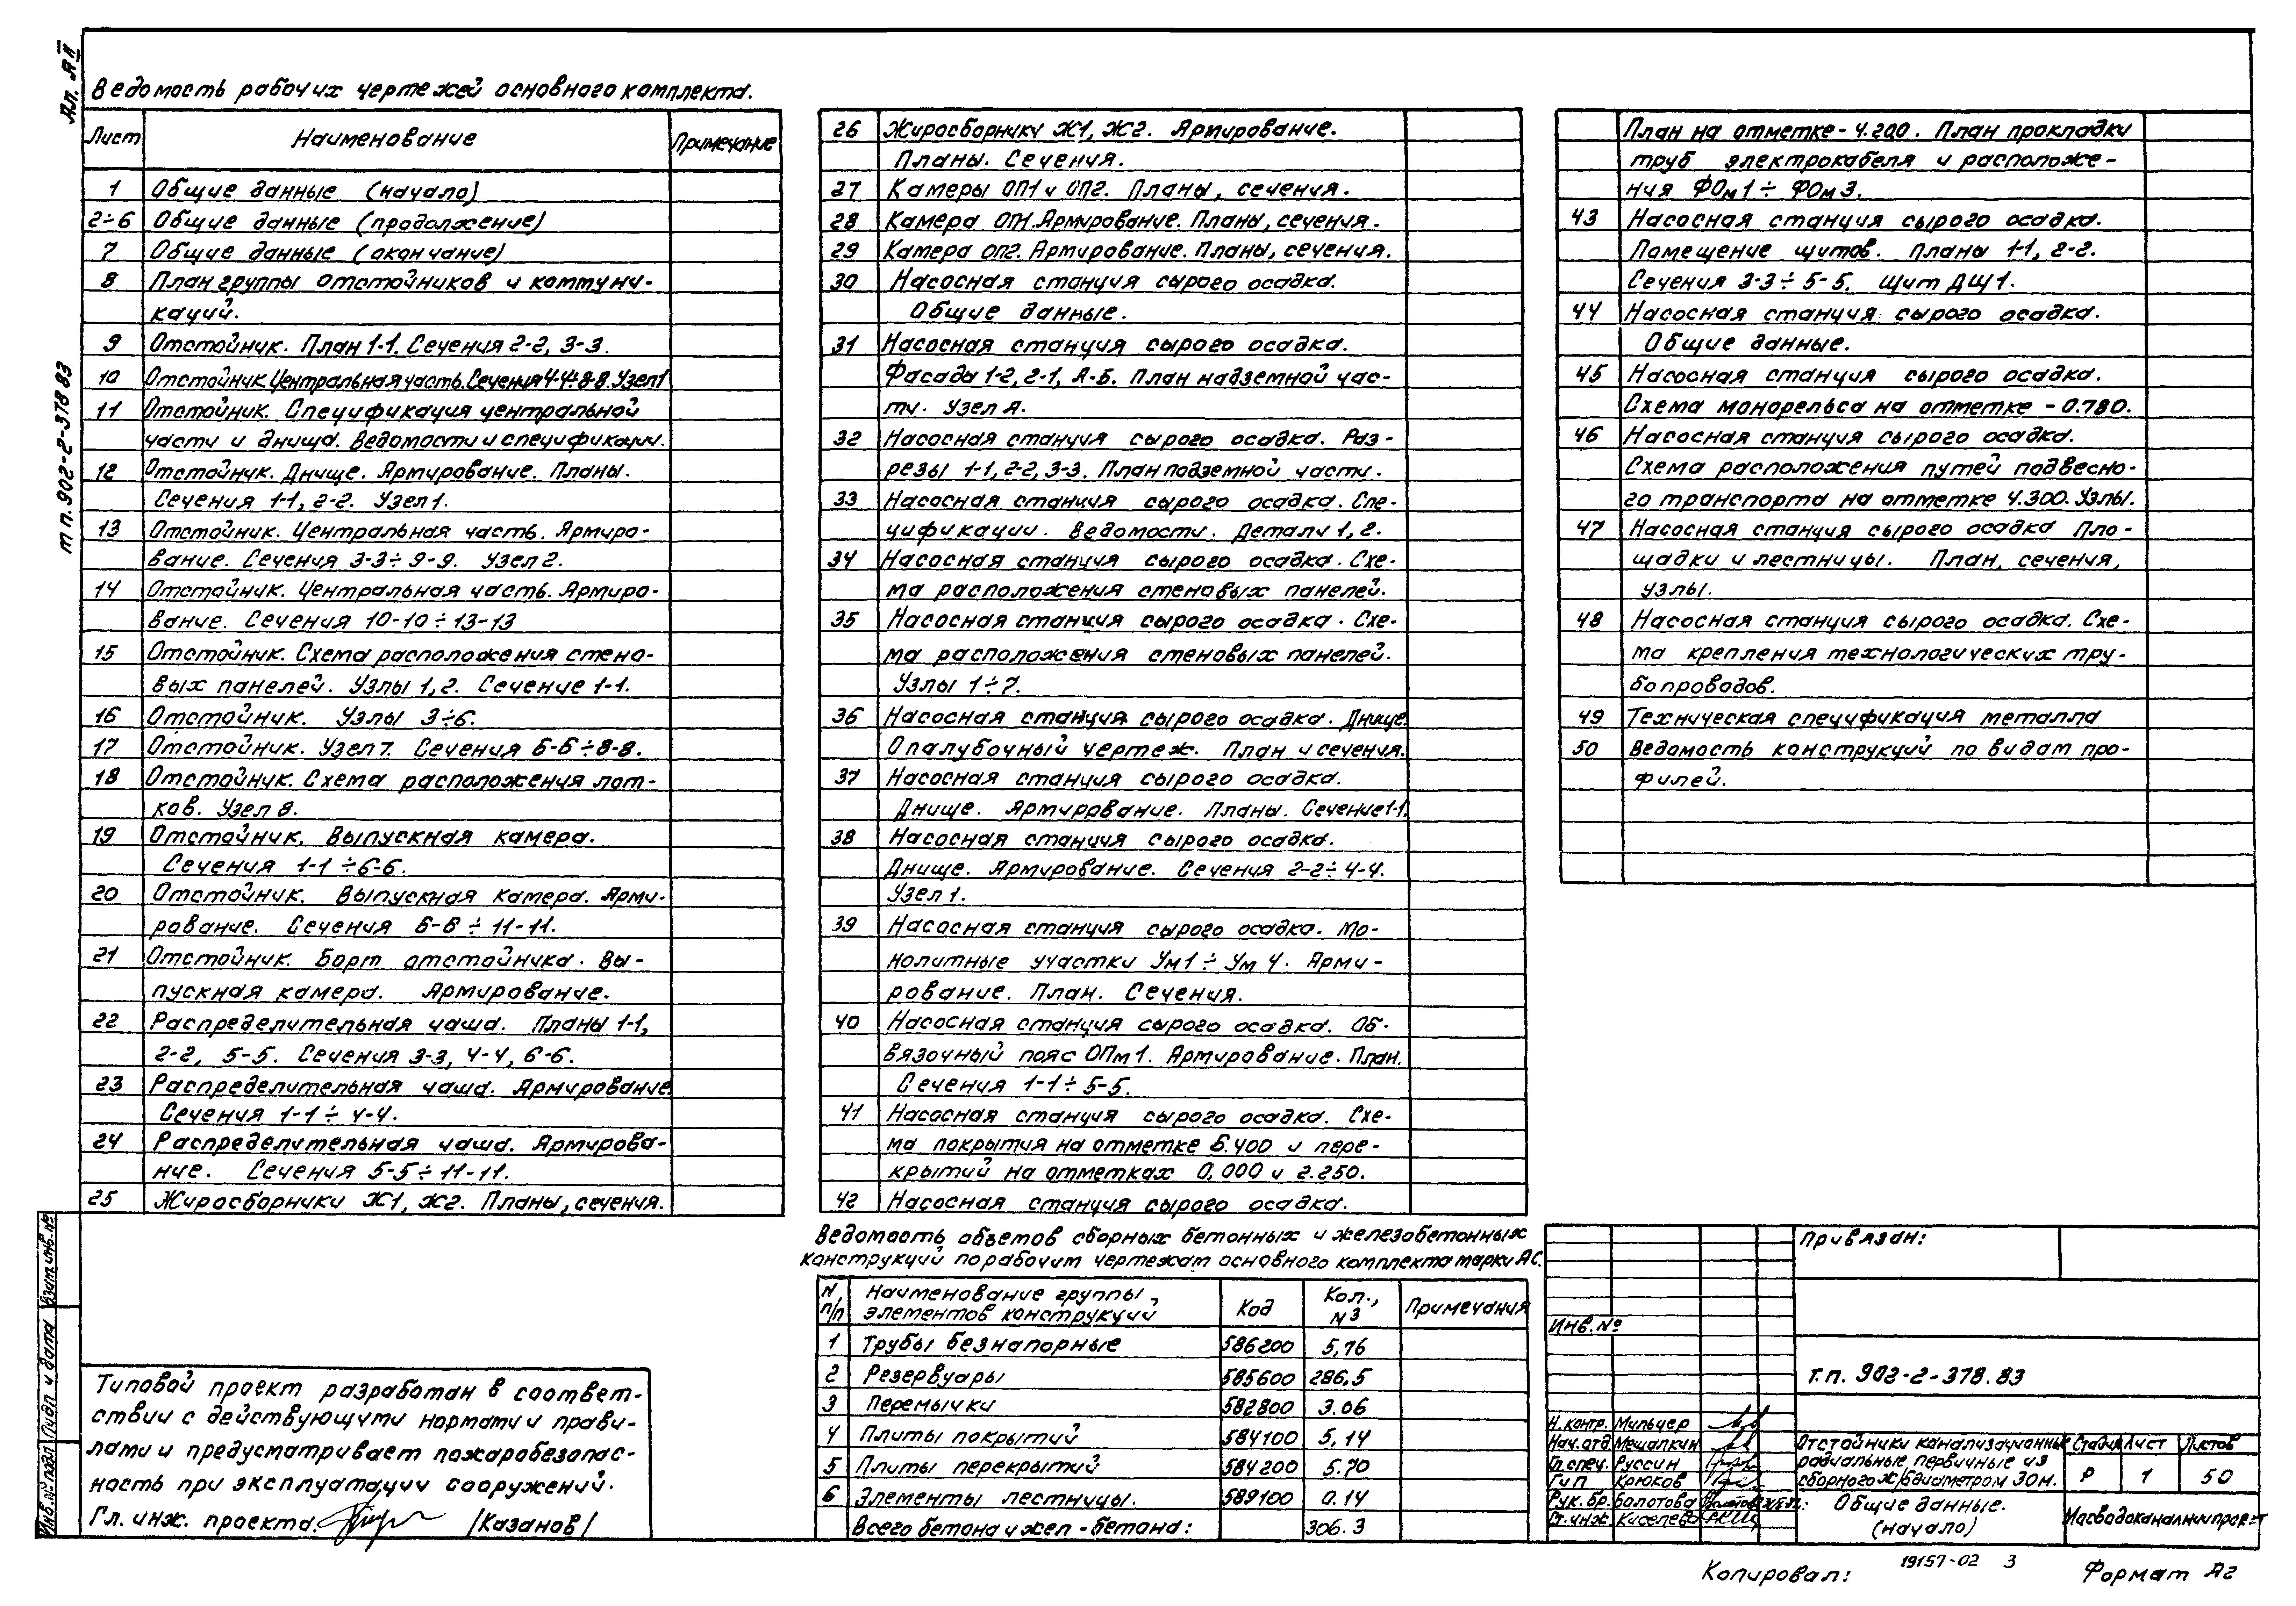 Ал. АII
т п. 902-2-378 83
Ведомость рабочих чертежей основного комплекта.
Лист Наименование Примечание
1 Общие данные (начало)
2÷6 Общие данные (продолжение)
7 Общие данные (окончание)
8 План группы отстойников и коммуни-
каций.
9 Отстойник. План 1-1. Сечения 2-2, 3-3.
10 Отстойник. Центральная часть. Сечения 4-4÷8-8. Узел 1
11 Отстойник. Спецификация центральной
части и днища. Ведомости и спецификации.
12 Отстойник. Днище. Армирование. Планы.
Сечения 1-1, 2-2. Узел 1.
13 Отстойник. Центральная часть. Армиро-
вание. Сечения 3-3÷9-9. Узел 2.
14 Отстойник. Центральная часть. Армиро-
вание. Сечения 10-10÷13-13
15 Отстойник. Схема расположения стено-
вых панелей. Узлы 1, 2. Сечение 1-1.
16 Отстойник. Узлы 3÷6.
17 Отстойник. Узел 7. Сечения 6-6÷8-8.
18 Отстойник. Схема расположения лот-
ков. Узел 8.
19 Отстойник. Выпускная камера.
Сечения 1-1÷6-6.
20 Отстойник. Выпускная камера. Арми-
рование. Сечения 6-6÷11-11.
21 Отстойник. Борт отстойника. Вы-
пускная камера. Армирование.
22 Распределительная чаша. Планы 1-1,
2-2, 5-5. Сечения 3-3, 4-4, 6-6.
23 Распределительная чаша. Армирование.
Сечения 1-1÷4-4.
24 Распределительная чаша. Армирова-
ние. Сечения 5-5÷11-11.
25 Жиросборники Ж1, Ж2. Планы, сечения.
26 Жиросборники Ж1, Ж2. Армирование.
Планы. Сечения.
27 Камеры ОП1 и ОП2. Планы, сечения.
28 Камера ОП1. Армирование. Планы, сечения.
29 Камера ОП2. Армирование. Планы, сечения.
30 Насосная станция сырого осадка.
Общие данные.
31 Насосная станция сырого осадка.
Фасады 1-2, 2-1, А-Б. План надземной час-
ти. Узел А.
32 Насосная станция сырого осадка. Раз-
резы 1-1, 2-2, 3-3. План подземной части.
33 Насосная станция сырого осадка. Спе-
цификации. Ведомости. Детали 1, 2.
34 Насосная станция сырого осадка. Схе-
ма расположения стеновых панелей.
35 Насосная станция сырого осадка. Схе-
ма расположения стеновых панелей.
Узлы 1÷7.
36 Насосная станция сырого осадка. Днище.
Опалубочный чертеж. План и сечения.
37 Насосная станция сырого осадка.
Днище. Армирование. Планы. Сечение 1-1.
38 Насосная станция сырого осадка.
Днище. Армирование. Сечения 2-2÷4-4.
Узел 1.
39 Насосная станция сырого осадка. Мо-
нолитные участки Ум1÷Ум4. Арми-
рование. План. Сечения.
40 Насосная станция сырого осадка. Об-
вязочный пояс ОПм1. Армирование. План.
Сечения 1-1÷5-5.
41 Насосная станция сырого осадка. Схе-
ма покрытия на отметке 6.400 и пере-
крытий на отметках 0,000 и 2.250.
42 Насосная станция сырого осадка.
План на отметке -4.200. План прокладки
труб электрокабеля и расположе-
ния ФОм1÷ФОм3.
43 Насосная станция сырого осадка.
Помещение щитов. Планы 1-1, 2-2.
Сечения 3-3÷5-5. Щит ДЩ1.
44 Насосная станция сырого осадка.
Общие данные.
45 Насосная станция сырого осадка.
Схема монорельса на отметке -0.780.
46 Насосная станция сырого осадка.
Схема расположения путей подвесно-
го транспорта на отметке 4.300. Узлы.
47 Насосная станция сырого осадка Пло-
щадки и лестницы. План, сечения,
узлы.
48 Насосная станция сырого осадка. Схе-
ма крепления технологических тру-
бопроводов.
49 Техническая спецификация металла
50 Ведомость конструкций по видам про-
филей.
Ведомость объемов сборных бетонных и железобетонных
конструкций по рабочим чертежам основного комплекта марки АС.
N п/п Наименование группы элементов конструкций Код Кол., м3 Примечания
1 Трубы безнапорные 586200 5,76
2 Резервуары 585600 286,5
3 Перемычки 582800 3.06
4 Плиты покрытий 584100 5,14
5 Плиты перекрытий 584200 5.70
6 Элементы лестницы. 589100 0.14
Всего бетона и жел-бетона: 306.3
Типовой проект разработан в соответ-
ствии с действующими нормами и прави-
лами и предусматривает пожаробезопас-
ность при эксплуатации сооружений.
Гл. инж. проекта: /Казанов/
Взам. инв. №
Подп. и дата
Инв. № подл
Привязан:
Инв. №
Т.п. 902-2-378.83
Н.контр. Мильчер
Нач.отд Мешалкин
Гл.спец. Руссин
ГИП Крюков
Рук. бр. Болотова
Ст.инж. Киселева
Отстойники канализационные
радиальные первичные из
сборного ж/б диаметром 30м.
Стадия Лист Листов
Р 1 50
Общие данные.
(начало)
Мосводоканалниипроект
Копировал: 19157-02 3 Формат А2